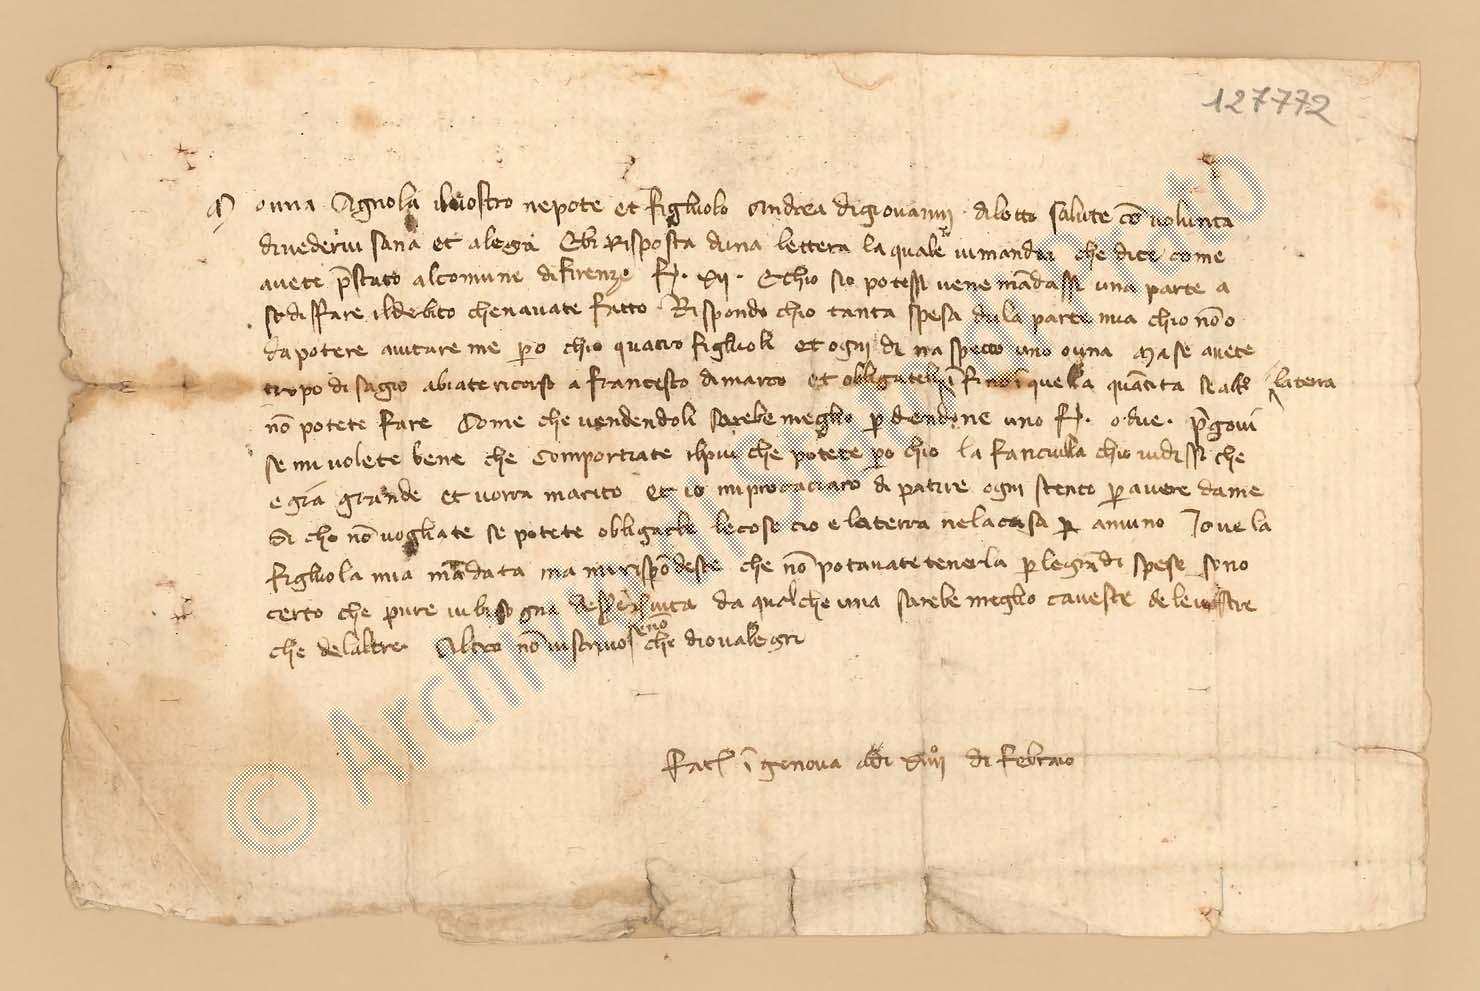 127772
Monna Agnola il vostro nepote et figluolo Andrea di giovannj di lotto salute cō volunta
di vedervi sana et alegra Ebi Risposta duna lettera la quale vi mandai che dice come
avete p̄stato al comune di firenze f. XII. E chio sio potessi vene mādassi una parte a
sodisffare il debito chenavate fatto. Rispondo chio tanta spesa da la parte mia chio nō o
da potere aiutare me po chio quatro figluoli et ogni di na spetto uno o una Ma se avete
tropo disagio abiate ricorso a francescho di marco et obligateli ī fino i quella quātita se altro laterra
nō potete fare Come che vendendoli sarebe meglio p dendone uno f. o due. p̄govi
se mi volete bene che Comportiate il piu che potete po chio la fanciulla chio vi dissi che
e gia grande et vorra marito et io mi procaciaro di patire ogni stento p avere da me
Si che nō vogliate se potete obligarle le cose cio e la terra ne la casa p amuno Io ve la
figluola mia mādata ma mi rispōdeste che nō potavate tenerla p le grādi spese sono
certo che pure vi bisogna desser servita da qualche una sarebe meglio taveste de le vostre
che de laltre. Altro nō vi scrivo senō che dio valegri
Fatt ī genova adi XIIII° di febraio
© Archivio di Stato di Prato